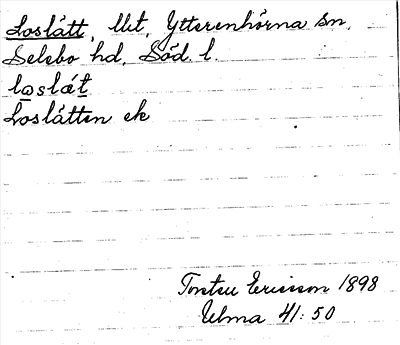 Loslått, Utt, Ytterenhörna sn,
Selebo hd, Söd. l.
loslåt
Loslåtten ek
Ericsson 1898
Ulma 41:50